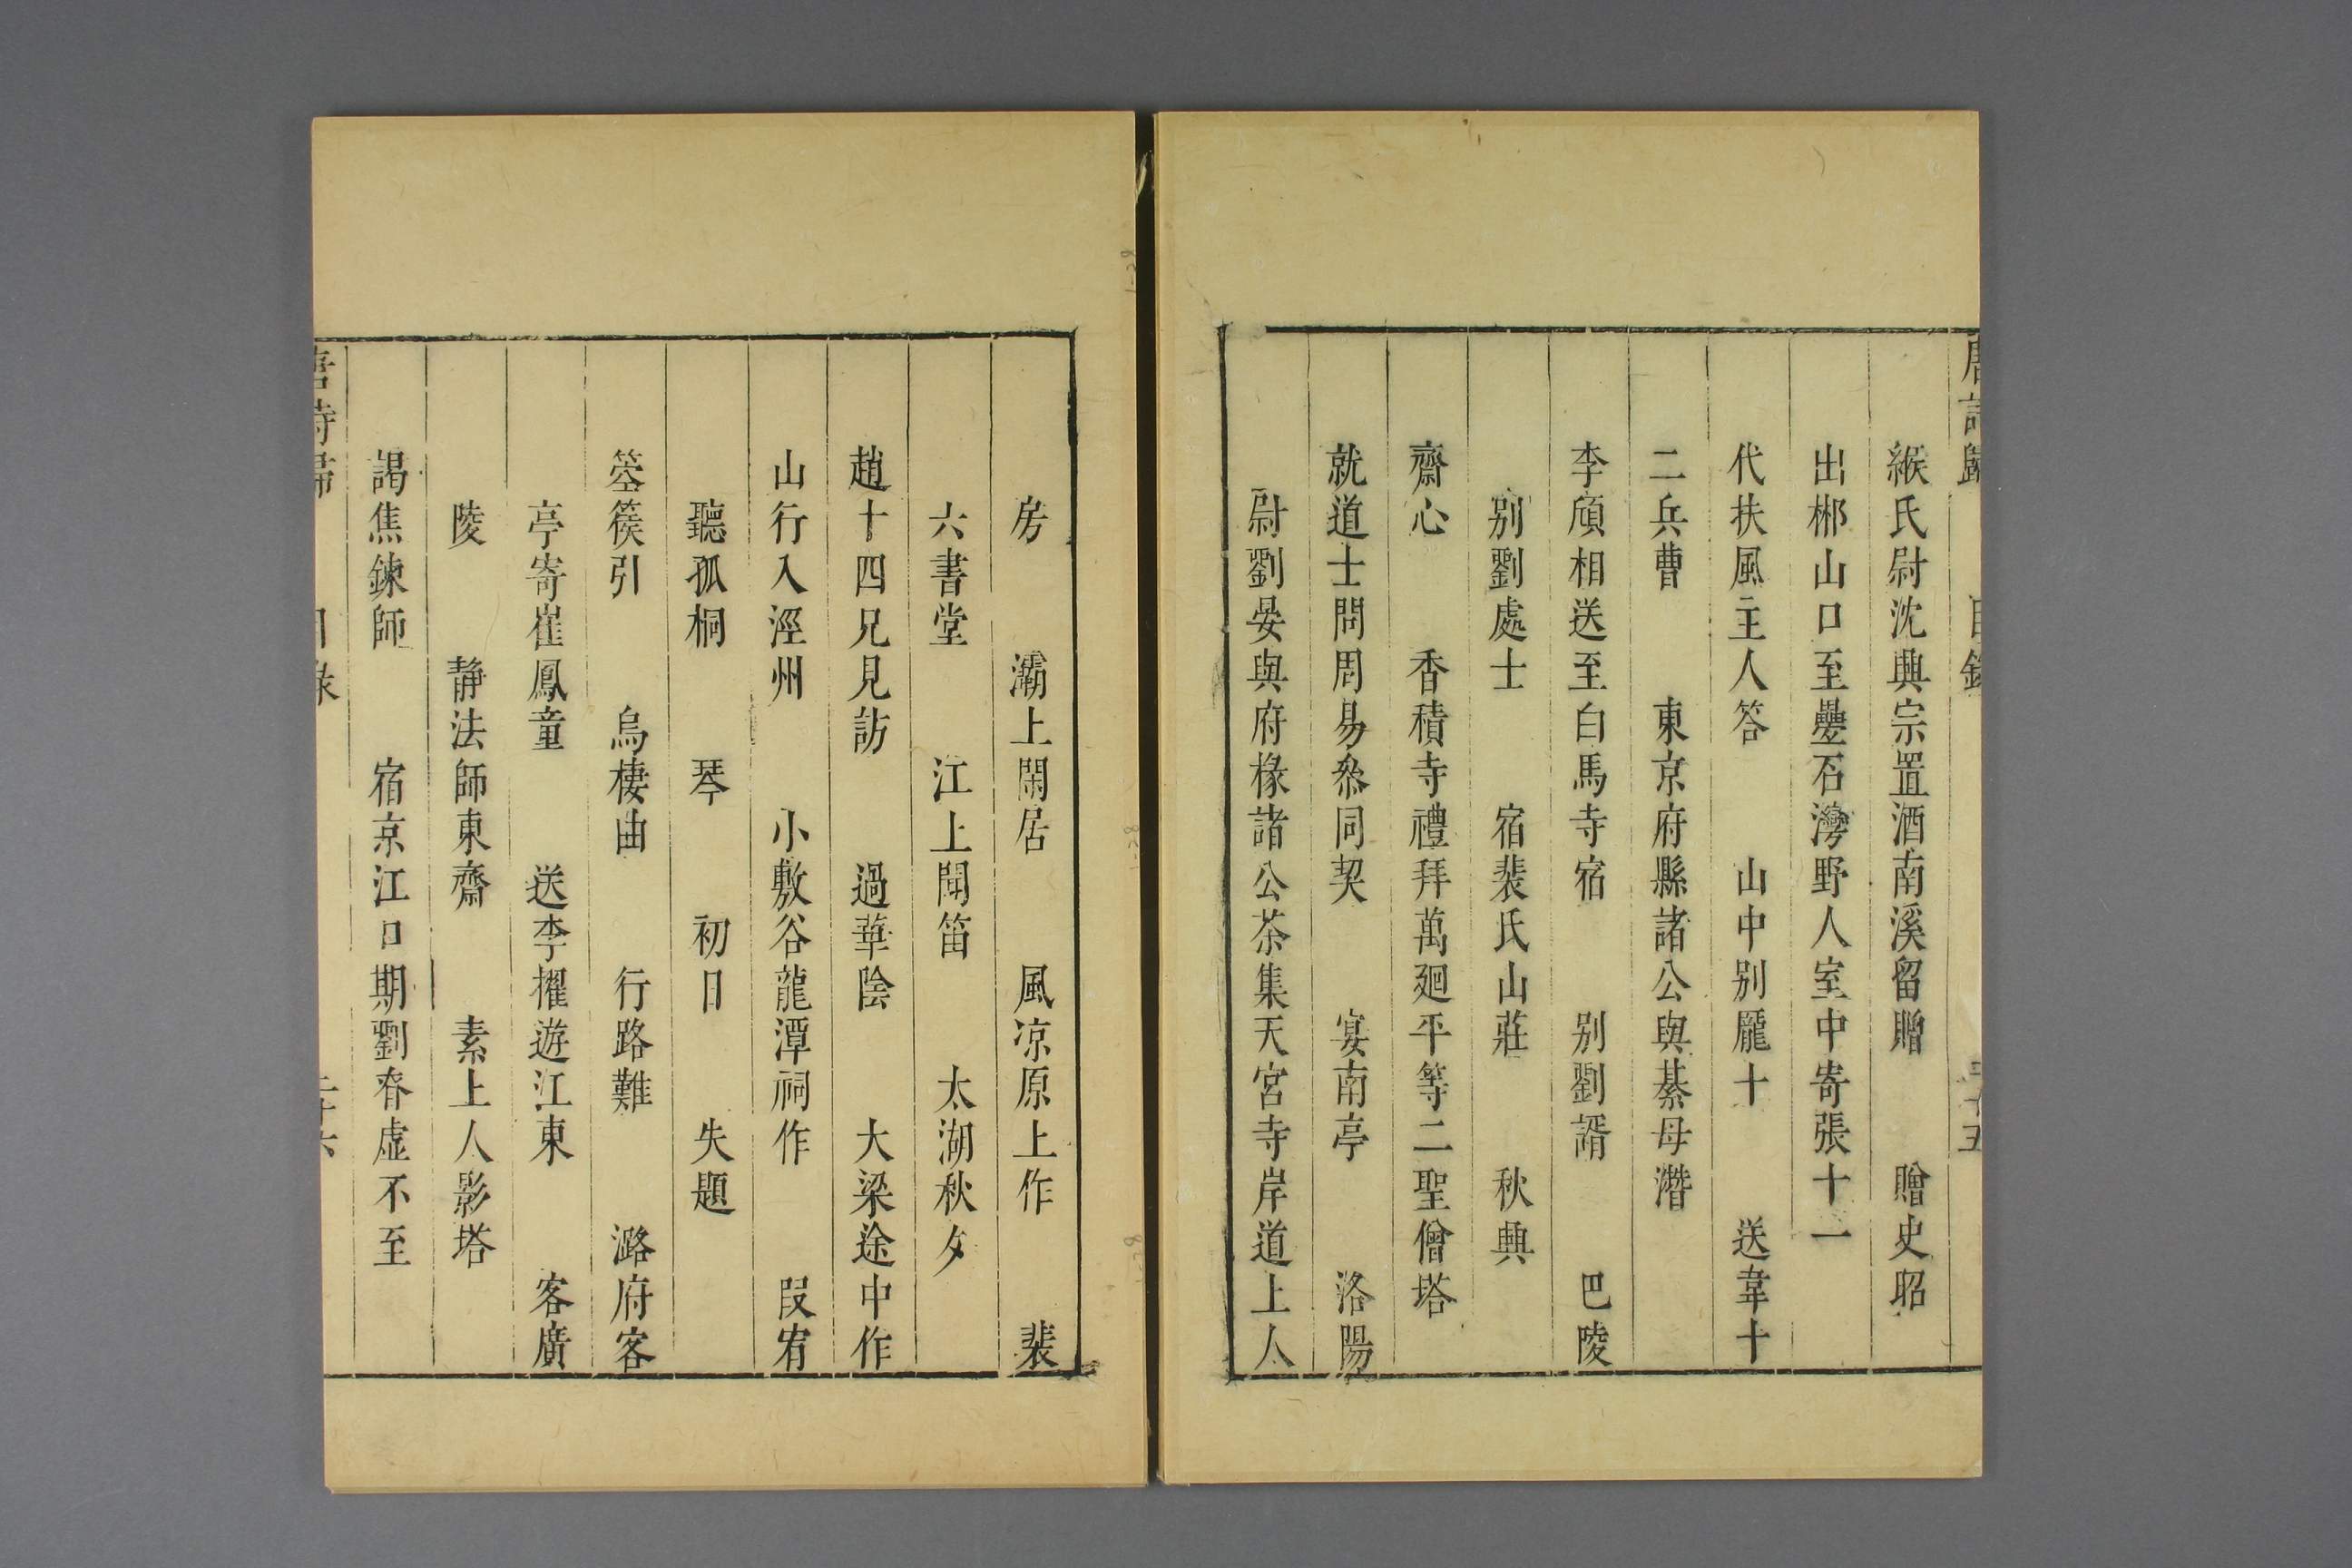 緱氏尉沈興宗置酒南溪留贈　贈史昭
出郴山口至疊石灣野人室中寄張十一
代扶風主人答　山中别龎十　送韋十
二兵曹　東京府縣諸公與綦母潛
李頎相送至白馬寺宿　别劉諝　巴陵
别劉處士　宿裴氏山莊　秋興
齋心　香積寺禮拜萬廻平等二聖僧塔
就道士問周易叅同契　宴南亭　洛陽
尉劉晏與府掾諸公茶集天宮寺岸道上人
房　灞上閑居　風凉原上作　裴
六書堂　江上聞笛　太湖秋夕
趙十四兄見訪　過華陰　大梁途中作
山行入涇州　小敷谷龍潭祠作　段宥
聽孤桐　琴　初日　失題
箜篌引　烏棲曲　行路難　潞府客
亭寄崔鳳童　送李擢遊江東　客廣
陵　静法師東齋　素上人影塔
謁焦鍊師　宿京江口期劉眘虛不至